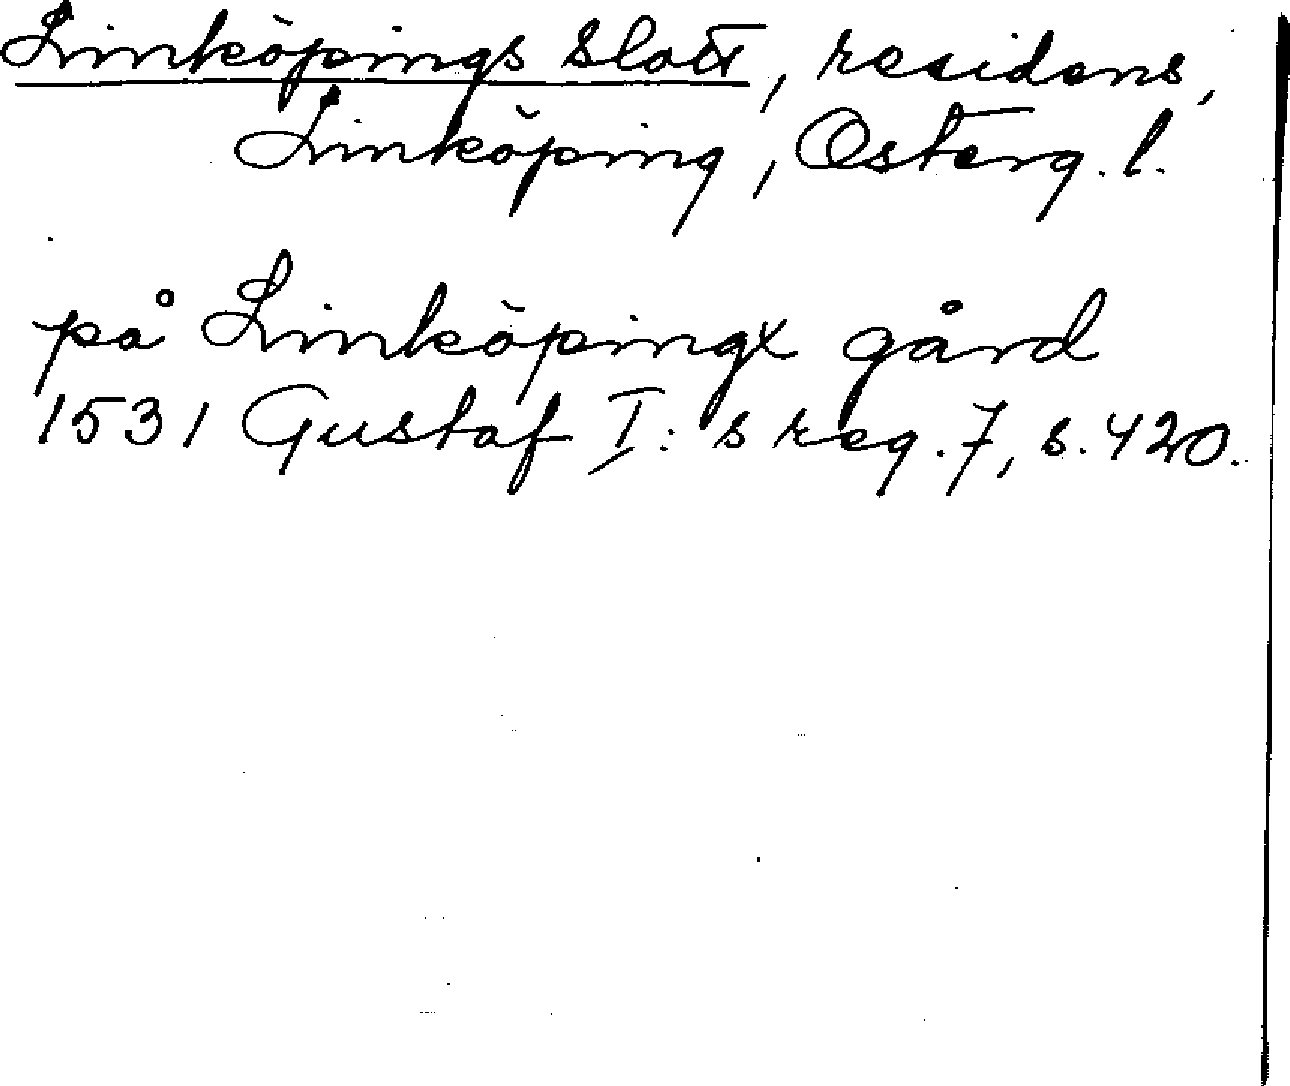 Linköpings slott, residens,
Linköping, Österg. l.
på Linköpingx gård
1531 Gustaf I:s reg. 7, s. 420.